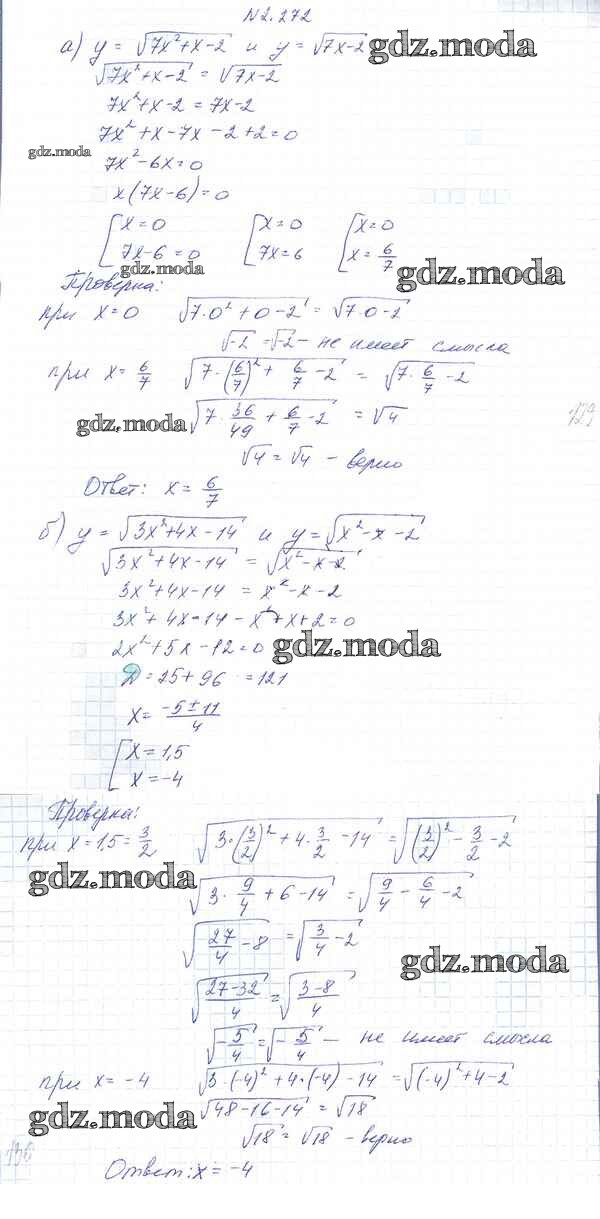 N 2.272
а) y = √(7x²+x-2) и y = √(7x-2) gdz.moda
√(7x²+x-2) = √(7x-2)
7x²+x-2 = 7x-2
7x²+x-7x-2+2=0
gdz.moda
7x²-6x=0
x(7x-6)=0
[x=0 [x=0 [x=0
7x-6=0 7x=6 x=6/7
gdz.moda gdz.moda
Проверка:
при x=0 √(7·0²+0-2) = √(7·0-2)
√-2 = √-2 - не имеет смысла
при x=6/7 √(7·(6/7)²+6/7-2) = √(7·6/7-2)
√(7·36/49+6/7-2) = √4
gdz.moda
√4=√4 - верно
Ответ: x=6/7
б) y=√(3x²+4x-14) и y=√(x²-x-2)
√(3x²+4x-14) = √(x²-x-2)
3x²+4x-14 = x²-x-2
3x²+4x-14-x²+x+2=0
2x²+5x-12=0 gdz.moda
D=25+96=121
x=(-5±11)/4
[x=1,5
x=-4
Проверка:
при x=1,5=3/2 √(3·(3/2)²+4·3/2-14) = √((3/2)²-3/2-2)
gdz.moda
√(3·9/4+6-14) = √(9/4-6/4-2)
√(27/4-8) = √(3/4-2)
gdz.moda
√((27-32)/4) = √((3-8)/4)
√(-5/4) = √(-5/4) - не имеет смысла
при x=-4 √(3·(-4)²+4·(-4)-14) = √((-4)²+4-2)
gdz.moda
√(48-16-14) = √18
√18=√18 - верно
Ответ: x=-4